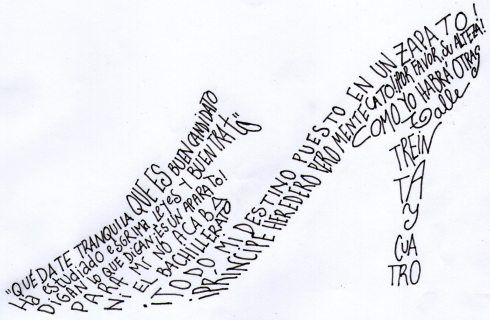 "QUÉDATE TRANQUILA QUE ES BUEN CANDIDATO
Ha estudiado esgrima, leyes y BUEN TRATO"
DIGAN LO QUE DIGAN ES UN APARATO!
PARA MÍ NO ACABÓ
NI EL BACHILLERATO
¡TODO MI DESTINO PUESTO EN UN ZAPATO!
¡PRÍNCIPE HEREDERO PERO MENTECATO! ¡POR FAVOR, SU ALTEZA!
COMO YO HABRÁ OTRAS
Talle
TREIN
TA
y
CUA
TRO